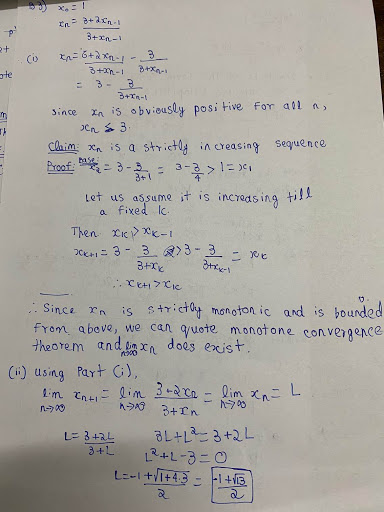 B3) x₀ = 1
xₙ = 3+2xₙ₋₁ / 3+xₙ₋₁
(i) xₙ = 6+2xₙ₋₁ / 3+xₙ₋₁ - 3 / 3+xₙ₋₁
= 3 - 3 / 3+xₙ₋₁
Since xₙ is obviously positive for all n,
xₙ ≤ 3.
Claim: xₙ is a strictly increasing sequence
Proof: Base x₂ = 3 - 3/3+1 = 3 - 3/4 > 1 = x₁
Let us assume it is increasing till
a fixed k.
Then xₖ > xₖ₋₁
xₖ₊₁ = 3 - 3/3+xₖ > 3 - 3/3+xₖ₋₁ = xₖ
∴ xₖ₊₁ > xₖ
∴ Since xₙ is strictly monotonic and is bounded
from above, we can quote monotone convergence
theorem and lim n→∞ xₙ does exist.
(ii) using Part (i),
lim n→∞ xₙ₊₁ = lim n→∞ 3+2xₙ / 3+xₙ = lim n→∞ xₙ = L
L = 3+2L / 3+L 3L+L² = 3+2L
L²+L-3=0
L = -1+√1+4.3 / 2 = -1+√13 / 2